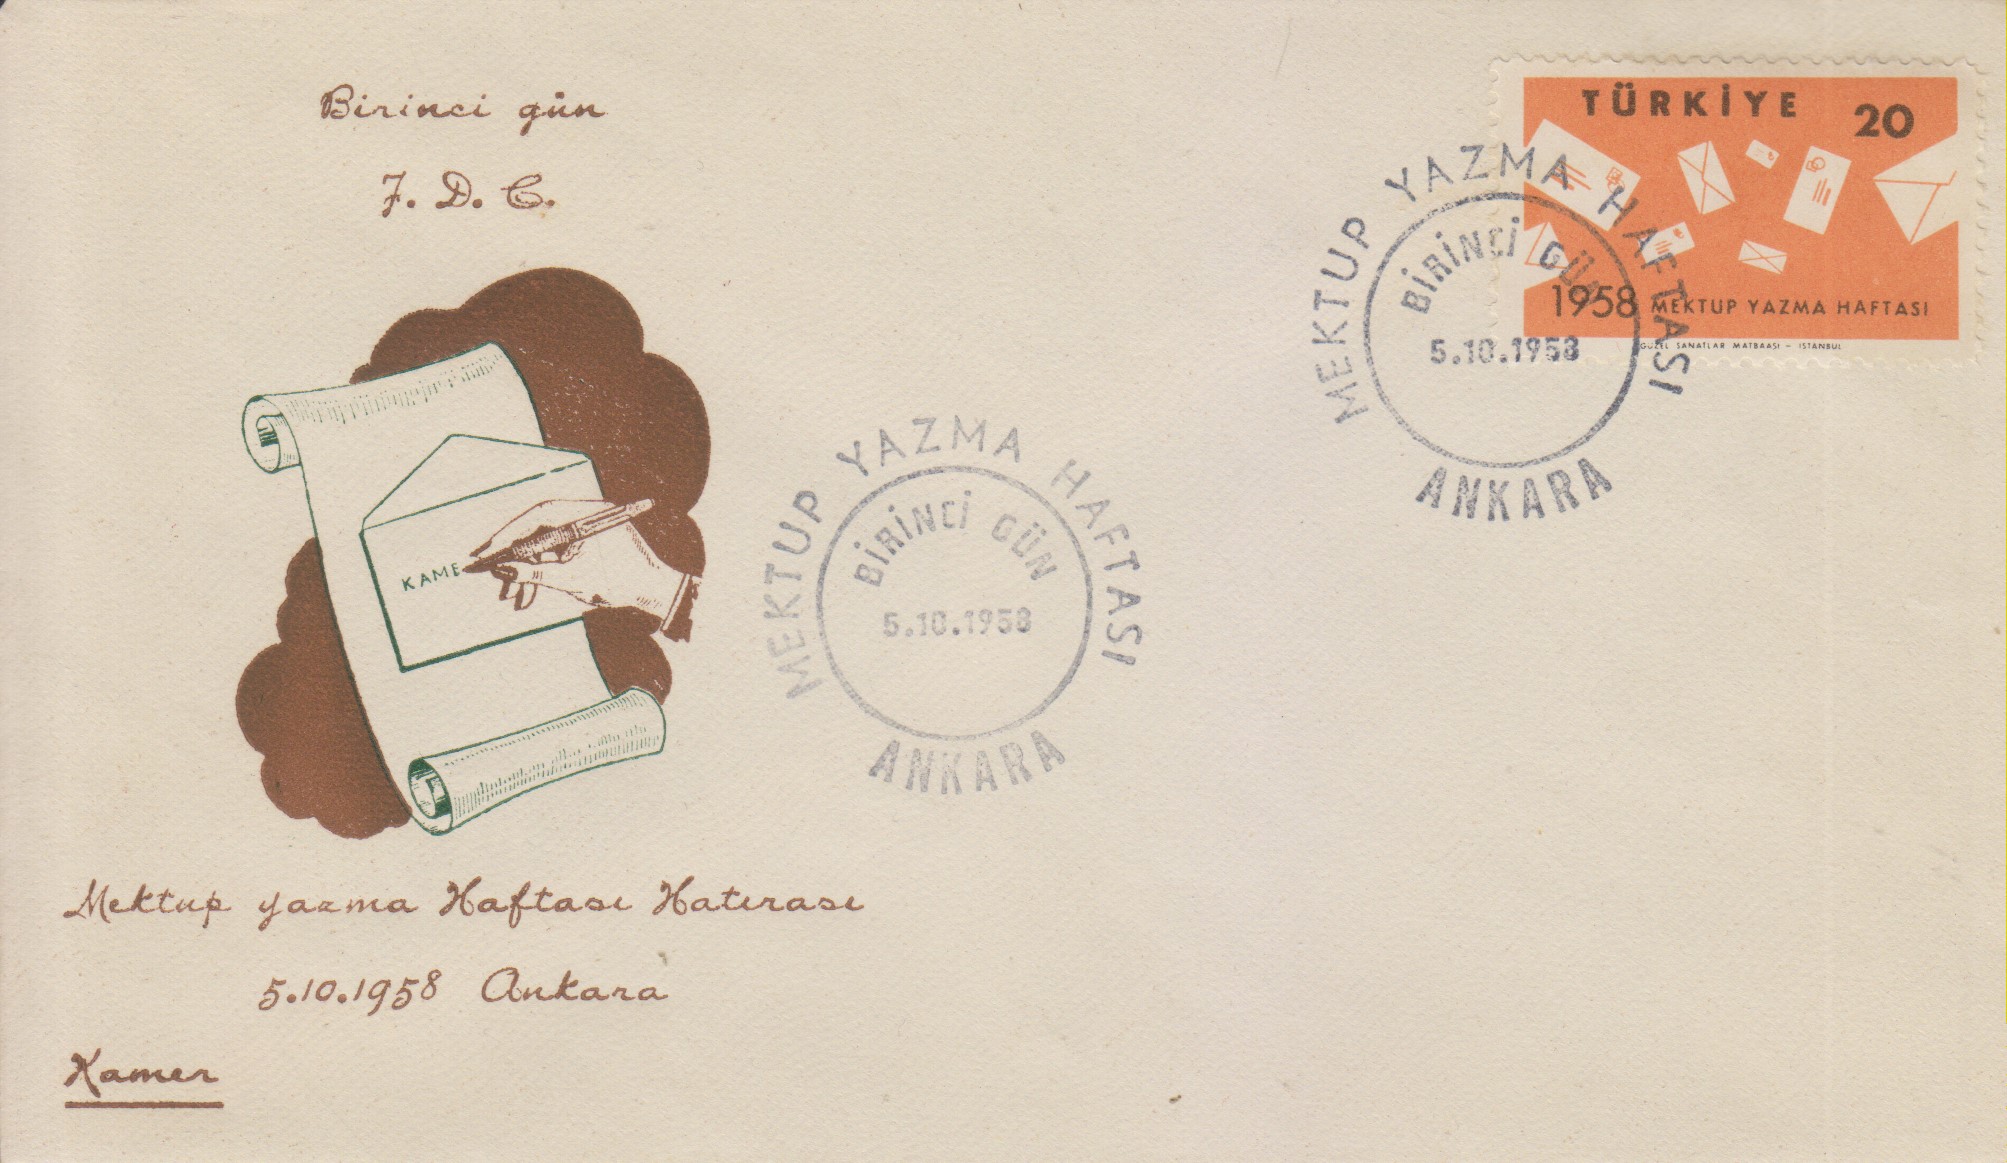 Birinci gün
F. D. C.
TÜRKİYE 20
1958 MEKTUP YAZMA HAFTASI
GÜZEL SANATLAR MATBAASI - ISTANBUL
MEKTUP YAZMA HAFTASI
BİRİNCİ GÜN
5.10.1958
ANKARA
MEKTUP YAZMA HAFTASI
BİRİNCİ GÜN
5.10.1958
ANKARA
KAME
Mektup yazma Haftası Hatırası
5.10.1958 Ankara
Kamer